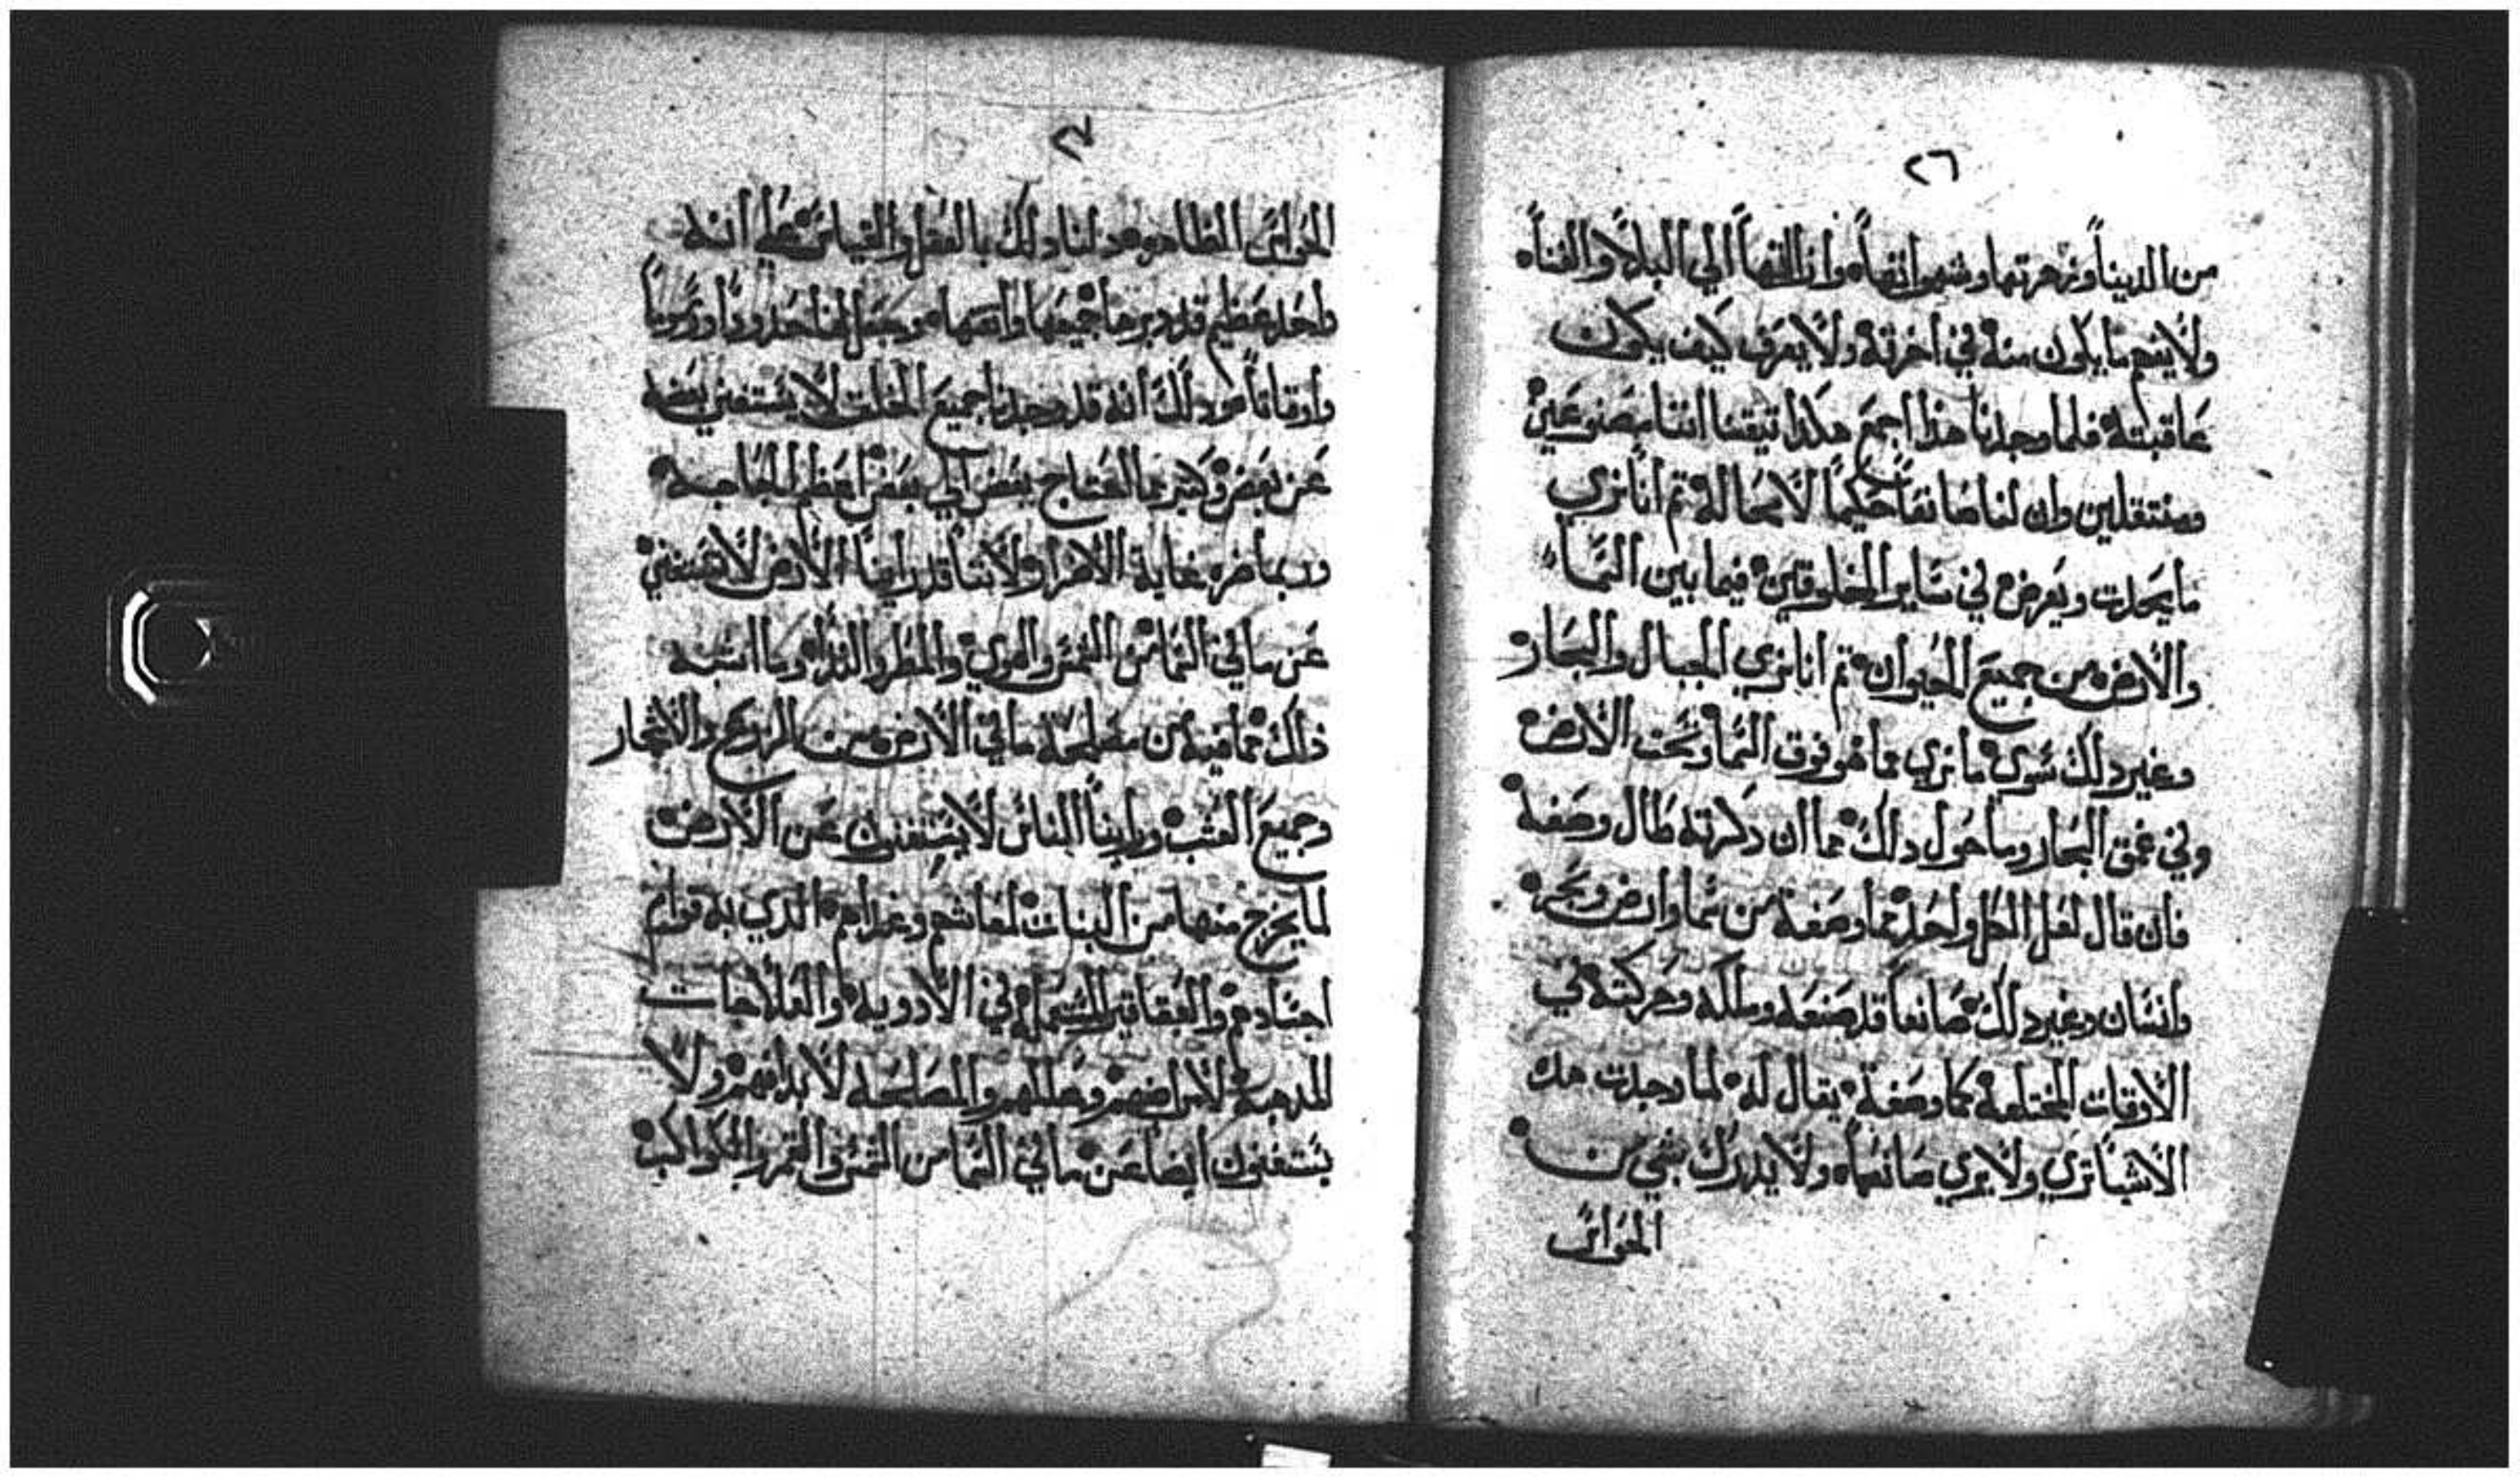 ٢٦
من الدنيا وزهرتها وشهواتها وازالتها الي البلا والفناه
ولا يفهم ما يكون منه في اخرته ولا يعرف كيف يكون
عاقبته فلما وجدنا هذا اجمع هكذا تيقنا اننا مصنوعين
ومنتقلين وان لنا صانعا حكيما لا محاله تم انا نري
ما يحدت ويعرض في ساير المخلوقين فيما بين السما
والارض من جميع الحيوان تم انا نري الجبال والبحار
وغير دلك سوي ما نري مما هو فوق السما وتحت الارض
وفي عمق البحار وما حول دلك مما ان دكرته طال وصفه
فان قال لعل الكل واحد مما وصفه من سما وارض وبحر
وانسان وغير دلك صانعا قد صنعه وملكه وحركته في
الاوقات المختلفة كما وصفة يقال له لما وجدت هده
الاشيا تري ولا يري صانعها ولا يدرك بشي من
الحواس
٢٧
الحواس الظاهره دلنا دلك بالعقل والقياس علي انه
واحد عظيم قد دبرها جميعها واتقنها وجعل لها حدودا ورسوما
واوقاتا ودلك انه قد وجدنا جميع الخلق لا يستغني بعضه
عن بعض وكتير مما يحتاج بعض الي بعض اعظم الحاجه
وربما ضره غاية الاضرار ولاننا قد راينا الارض لا تستغني
عن ما في السما من الشمس والهوي والمطر والندا وما اشبه
ذلك مما فيه من مصلحة ما في الارض من الزروع والاشجار
وجميع العشب وراينا الناس لا يستغنون عن الارض
لما يخرج منها من النبات لمعاشهم وغداهم الذي به قوام
اجسادهم والعقاقير المستعمله في الادويه والعلاجات
المدهبه لامراضهم وعللهم والمصالحه لابدانهم ولا
يستغنون ايضا عن ما في السما من الشمس والقمر والكواكب